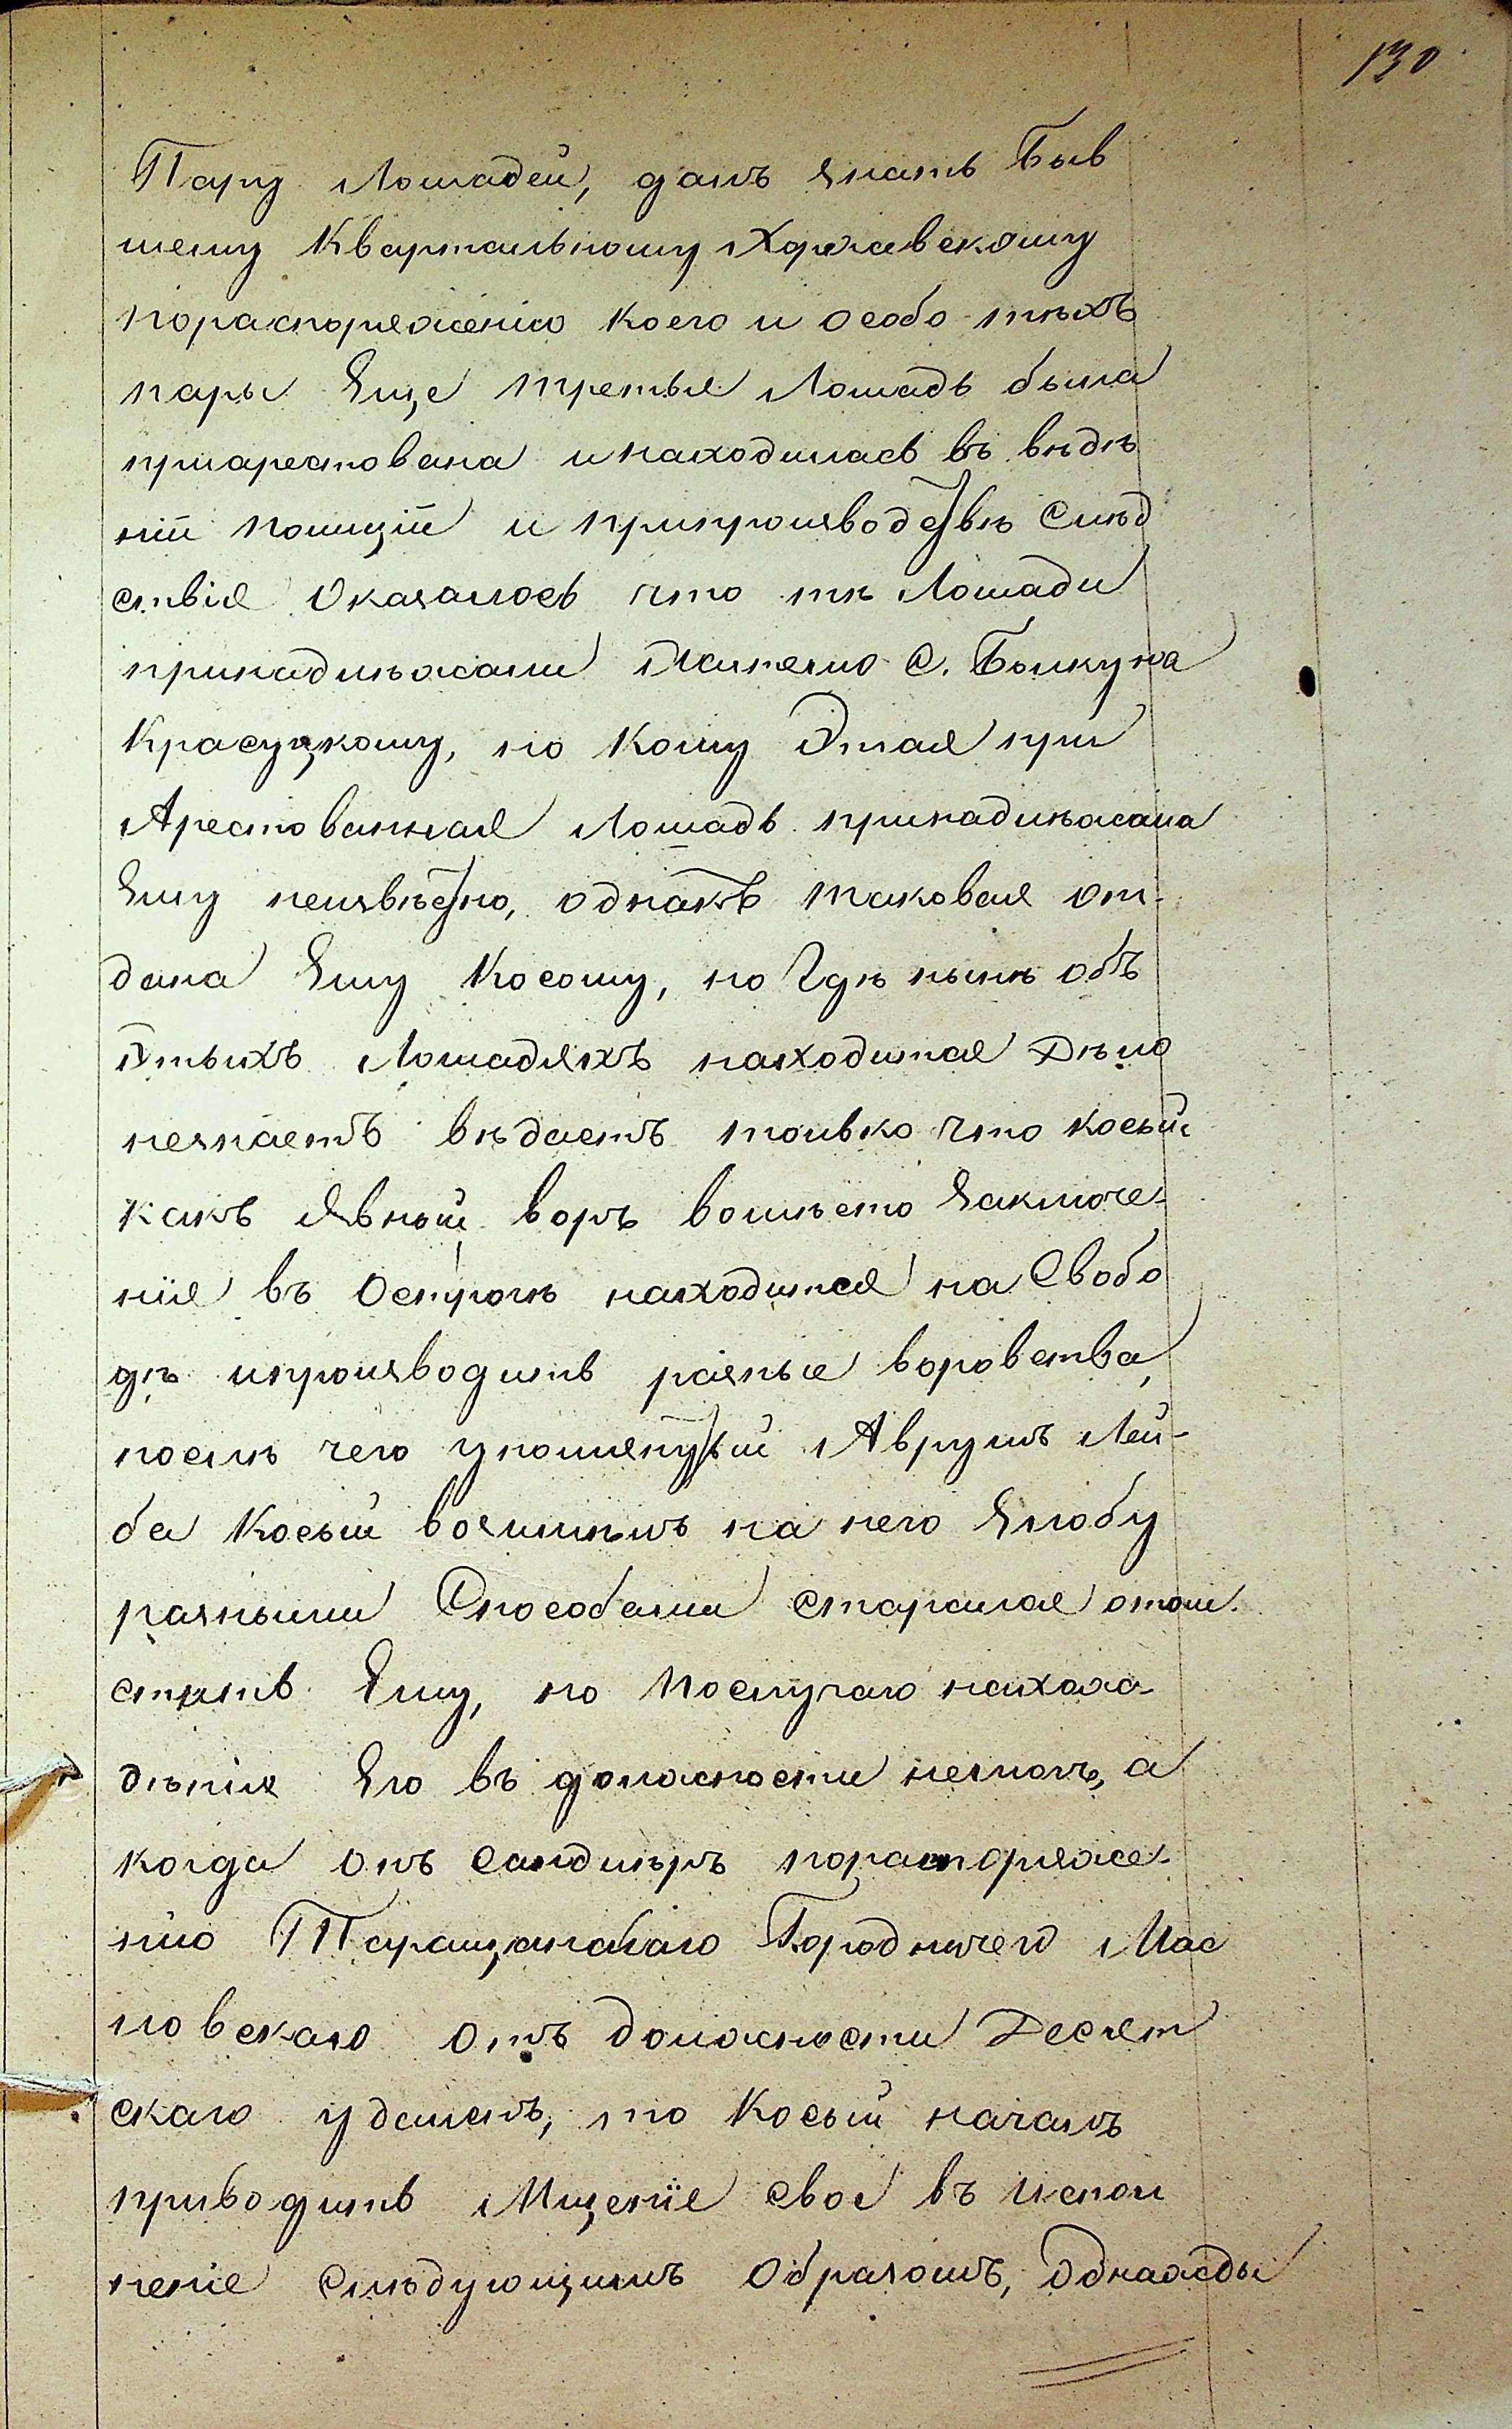 130
Пару Лошадей, далъ знать Быв
шему Квартальному Харжевскому
пораспоряженію коего и особо тѣхъ
пары Еще третья Лошадь была
приарестована инаходилась въ вѣдѣ
ніи полиціи и припроизводствѣ Слѣд
ствія Оказалось что тѣ Лошади
принадлѣжали Жителю С. Быкуна
Красуцкому, но кому Этая при
Арестованная Лошадь принадлѣжала
Ему неизвѣстно, однакъ таковая от-
дана Ему Косому, но Гдѣ нынѣ объ
Этыхъ Лошадяхъ находится Дѣло
незнаетъ вѣдаетъ только что косый
какъ Явный воръ вомѣсто Заключе-
нія въ Острогѣ находится на Свобо
дѣ ипроизводитъ разные воровства,
послѣ чего упомянутый Аврумъ Лей-
ба Косый возимѣлъ на него Злобу
разными Способами старался отом-
стить Ему, но Послучаю нахож-
дѣнія Его въ должности немогъ, а
когда онъ Сандлѣръ пораспоряже-
нію Таращанскаго Городничего Мас
ловскаго отъ должности Десят
скаго удалѣнъ, то Косый началъ
приводить Мщеніе свое въ испол
неніе Слѣдующимъ Образомъ, Однажды